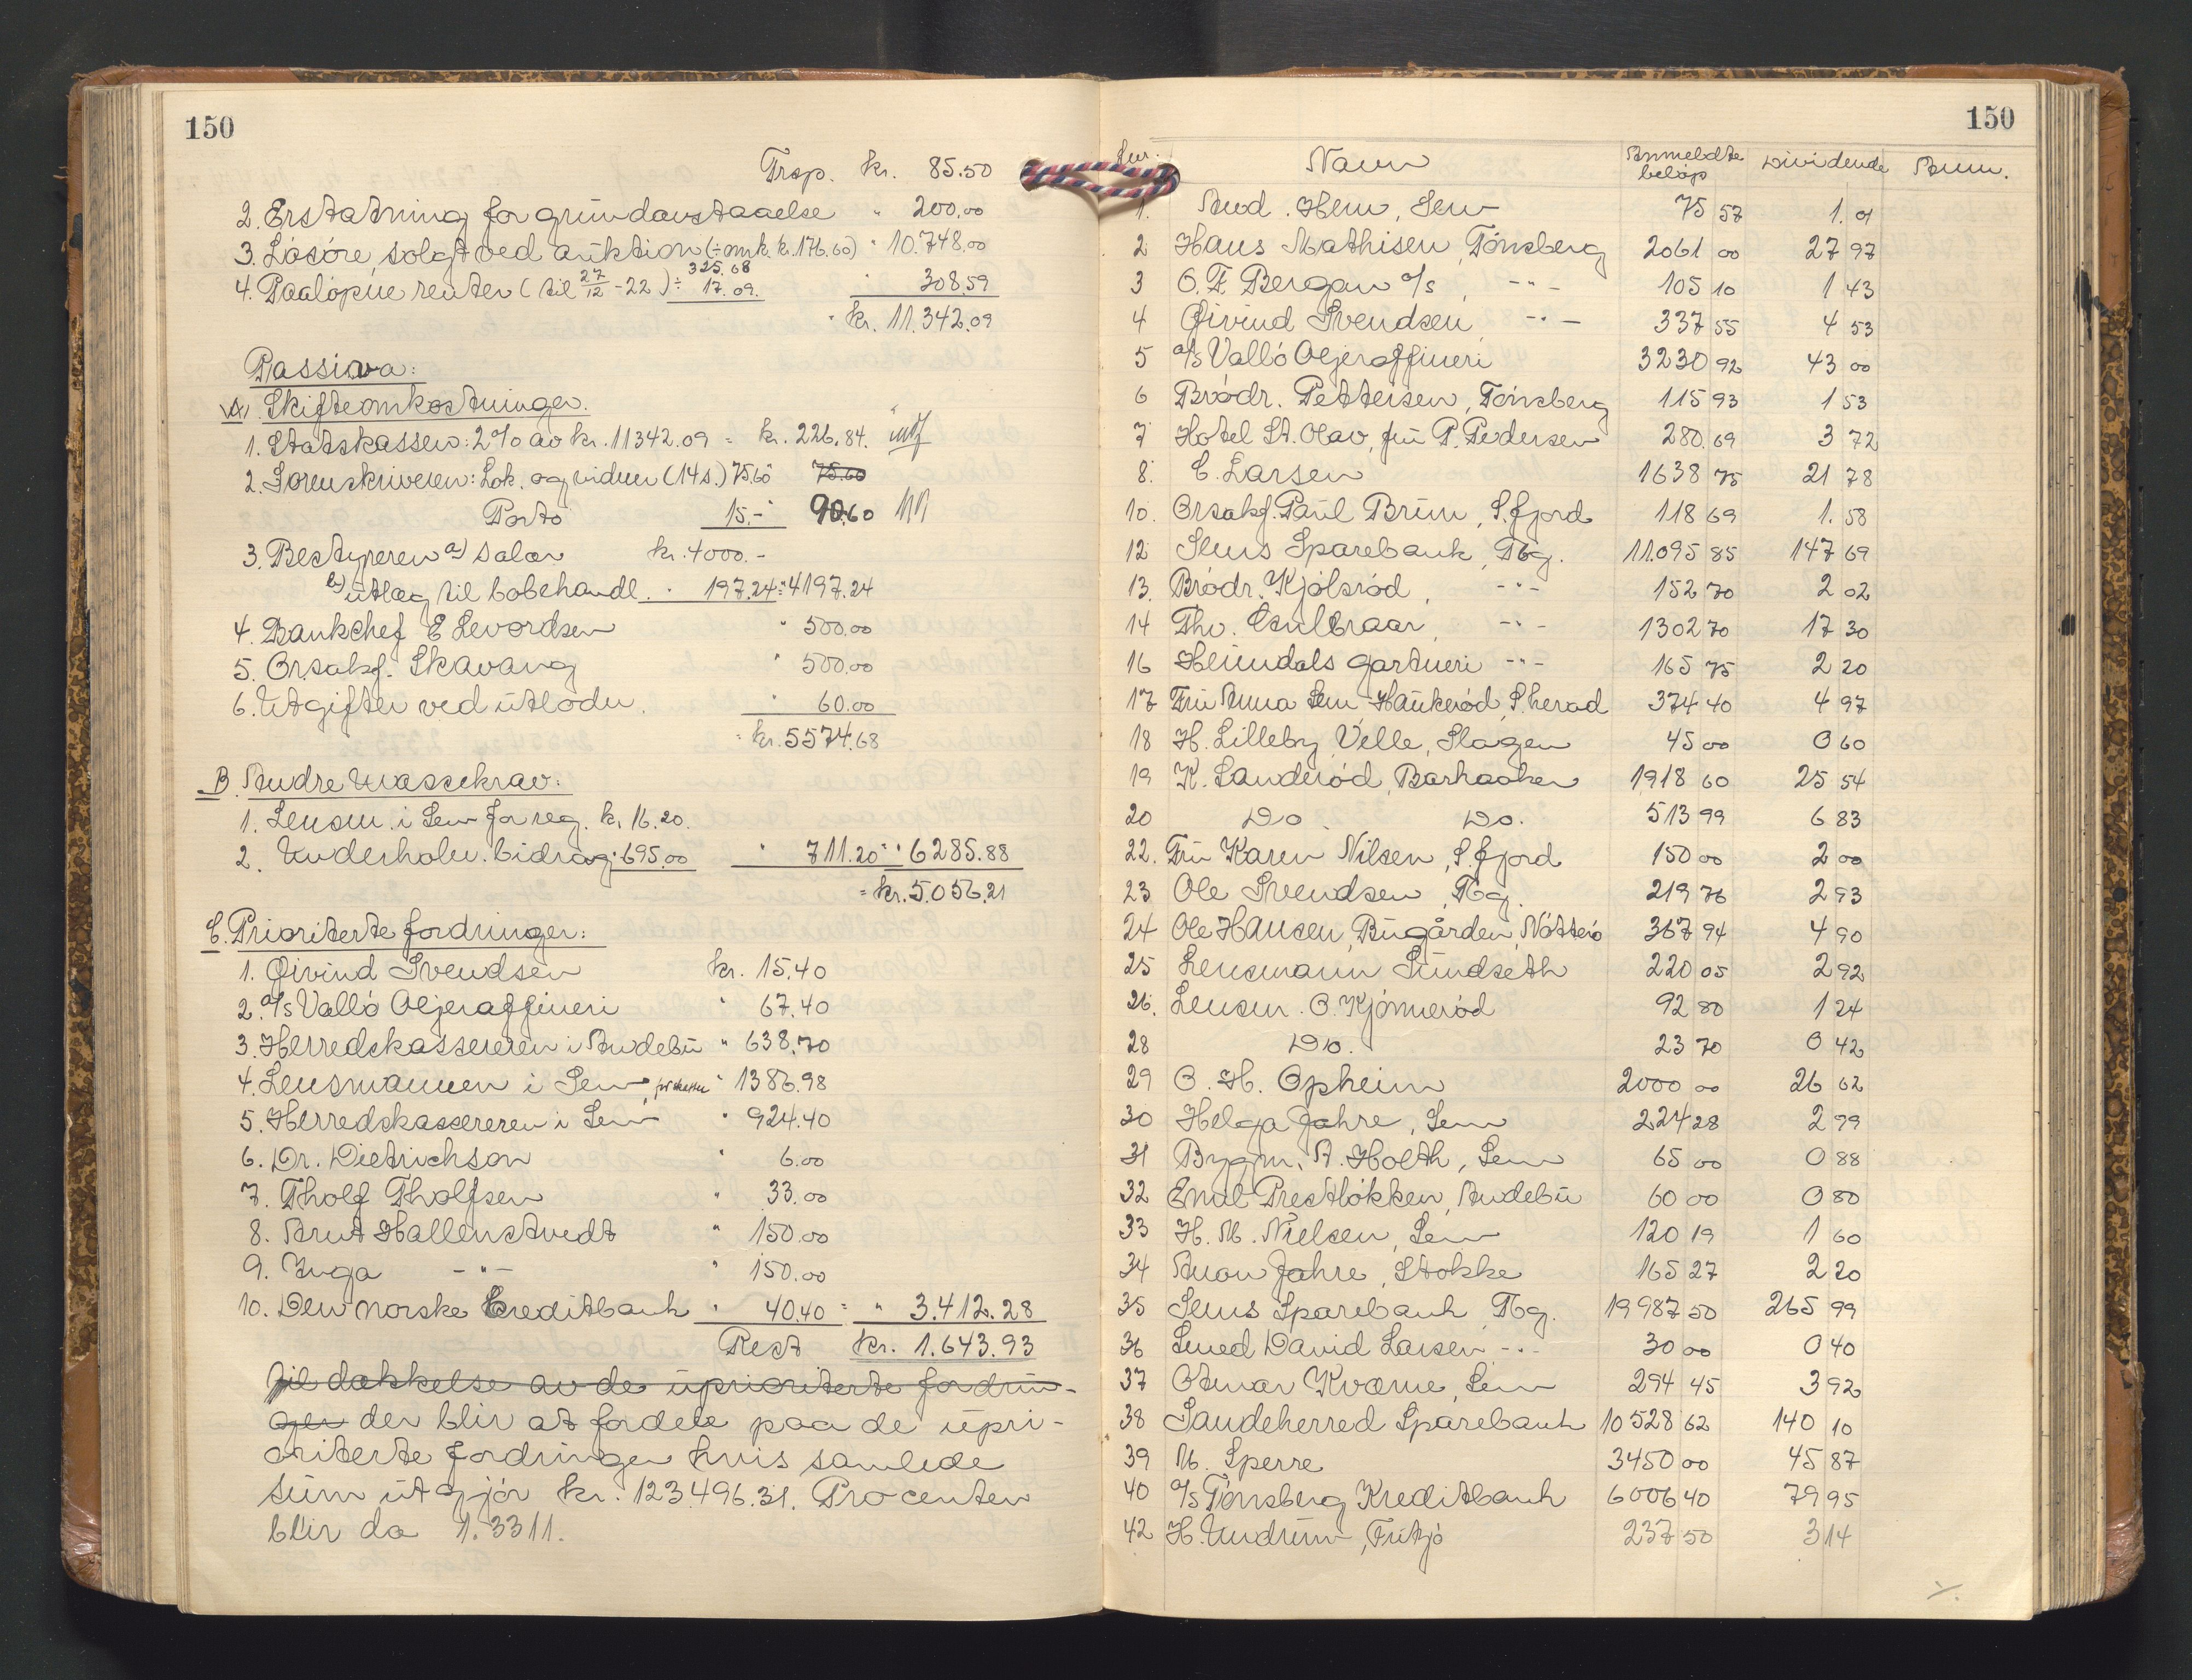 150
Trsp. kr. 85.50
2. Erstatning for grundavstaaelse " 200.00
3. Lösöre, solgt ved auktion (÷ omk. kr. 176.60) " 10.748.00
4. Paalöpne renter (til 27/12-22) 325.68 ÷ 17.09. " 308.59
" kr. 11.342.09
Passiva:
A. Skifteomkostninger.
1. Statskassen: 2% av kr. 11342.09 = kr. 226.84.
2. Sorenskriveren: Lok. og vidner (14 s.) 75.60 75.60
Porto 15.- 90.60
3. Bestyreren a) Salær kr. 4000.-
b) utlæg til bobehandl. " 197.24 = " 4197.24
4. Bankchef E Sevordsen " 500.00
5. Orsakf. Skavang " 500.00
6. Utgifter ved utlodn. " 60.00
= kr. 5574.68
B. Andre massekrav:
1. Lensm. i Sem for reg. kr. 16.20.
2. Underholn. bidrag " 695.00 " 711.20 = " 6285.88
= kr. 5.056.21
C. Prioriterte fordringer:
1. Öivind Svendsen kr. 15.40
2. a/s Vallö Oljeraffineri " 67.40
3. Herredskassereren i Andebu " 638.70
4. Lensmannen i Sem, for skatter " 1386.98
5. Herredskassereren i Sem " 924.40
6. Dr. Dietrichson " 6.00
7. Tholf Tholfsen " 33.00
8. Arnt Hallenstvedt " 150.00
9. Inga -"- " 150.00
10. Den norske Creditbank " 40.40 = " 3.412.28
Rest kr. 1.643.93
til dækkelse av de uprioriterte fordrin-
ger der blir at fordele paa de upri-
oriterte fordringer hvis samlede
sum utgjör kr. 123.496.31. Procenten
blir da 1.3311.
150
Lnr. Navn Anmeldte belöp Dividende Anm.
1. And. Hem, Sem 75 57 1. 01
2 Hans Mathisen, Tönsberg 2061 00 27 97
3 O. F. Bergan a/s, -"- 105 10 1 43
4 Öivind Svendsen -"- 337 55 4 53
5 a/s Vallö Oljeraffineri 3230 92 43 00
6 Brödr. Pettersen, Tönsberg 115 93 1 53
7 Hotel St. Olav, fru P. Pedersen 280. 69 3 72
8. C. Larsen 1638 75 21 78
10. Orsakf. Paul Bruu, S.fjord 118 69 1. 58
12 Sems Sparebank, Tbg. 11.095 85 147 69
13. Brödr. Kjölsröd, -"- 152 70 2 02
14 Thv. -"- 1302 70 17 30
16 Heimdals gartneri -"- 165 75 2 20
17 Fru Anna Sem Haukeröd, S.herad 374 40 4 97
18 H. Lilleby, Velle, Slagen 45 00 0 60
19 K. Sanderöd, Barkaaker 1918 60 25 54
20 Do. Do. 513 99 6 83
22. Fru Karen Nilsen, S.fjord 150 00 2 00
23 Ole Svendsen, Tbg. 219 76 2 93
24 Ole Hansen, Bugården, Nötterö 367 94 4 90
25 Lensmann Sundseth 220 05 2 92
26. Lensm. O. Kjönneröd 92 80 1 24
28 Do. 23 70 0 42
29 O. H. Opheim 2000 00 26 62
30 Helga Jahre, Sem 224 28 2 99
31 Bygm. A. Holth, Sem 65 00 0 88
32 Emil Prestlökken, Andebu 60 00 0 80
33 H. M. Nielsen, Sem 120 19 1 60
34 Anon Jahre, Stokke 165 27 2 20
35 Sems Sparebank, Tbg. 19987 50 265 99
36 Smed David Larsen, -"- 30 00 0 40
37 Otmar Kværne, Sem 294 45 3 92
38 Sandeherred Sparebank 10528 62 140 10
39 M. Sperre 3450 00 45 87
40 a/s Tönsberg Kreditbank 6006 40 79 95
42 H. Undrum, Fritjö 237 50 3 14